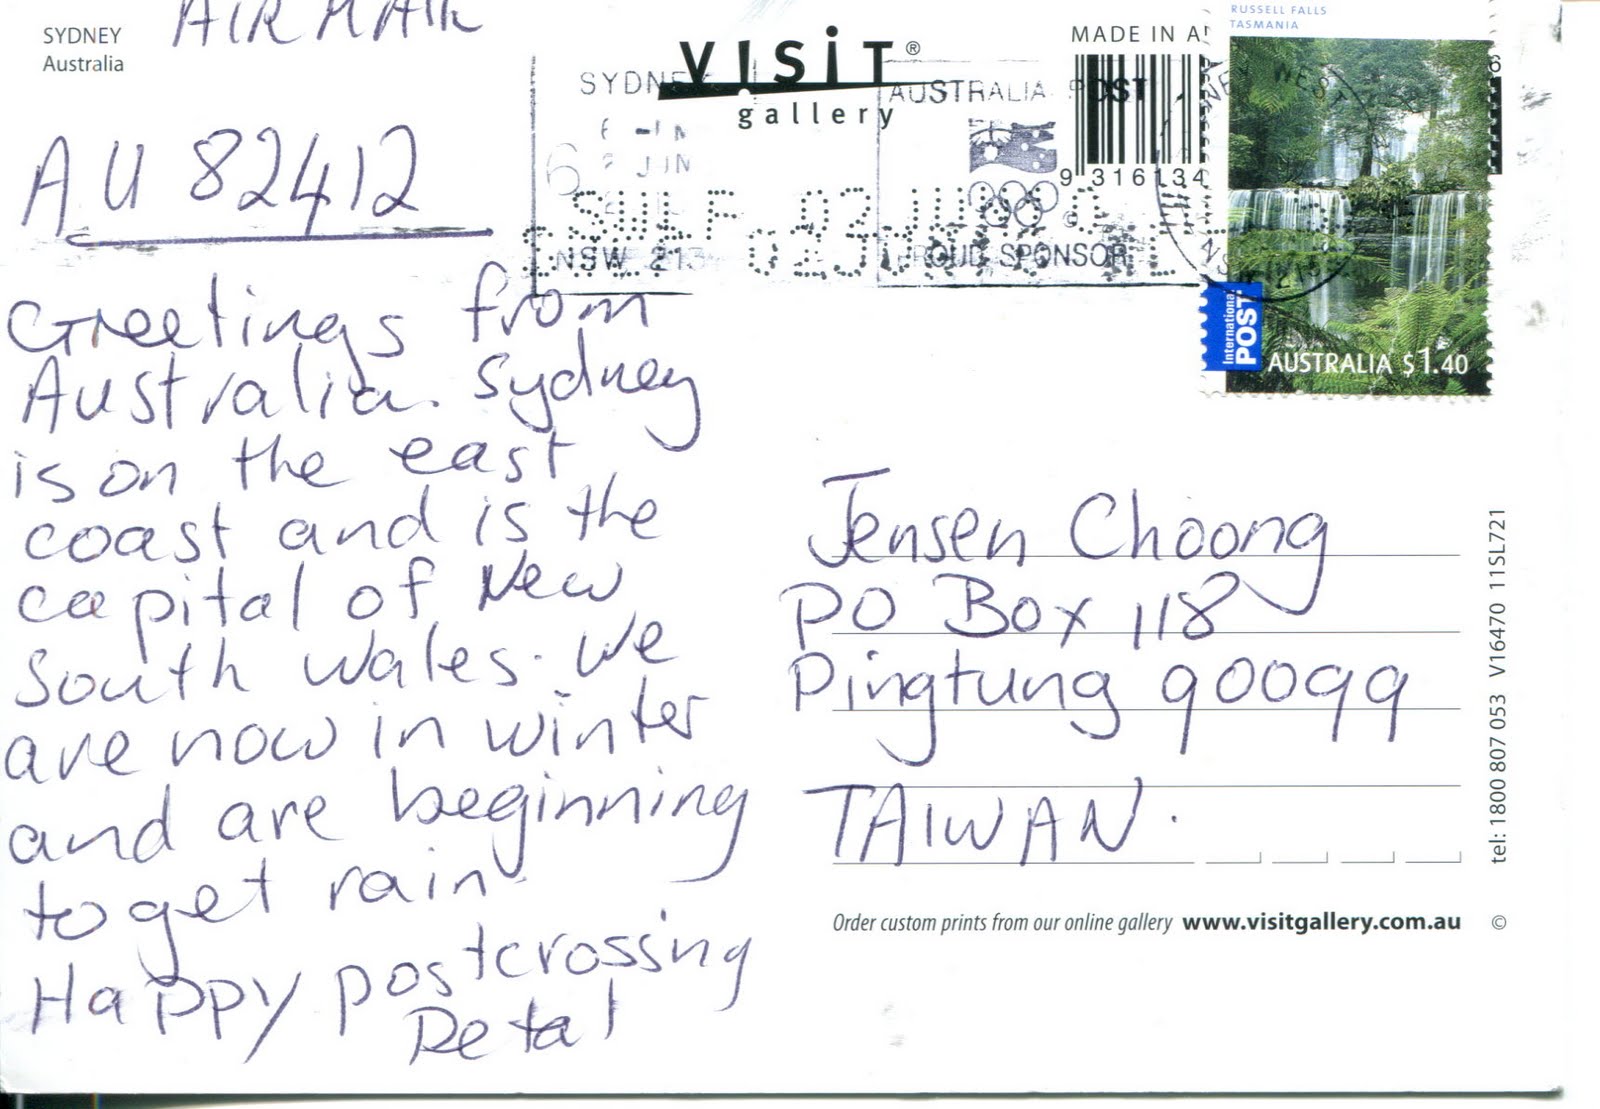 SYDNEY
Australia
AIR MAIL
VISIT®
gallery
MADE IN
9 316134
AU 82412
SYDNEY
AUSTRALIA POST
JUN
NSW 213
PROUD SPONSOR
RUSSELL FALLS
TASMANIA
International
POST
AUSTRALIA $1.40
Greetings from
Australia. Sydney
is on the east
coast and is the
capital of New
South Wales. We
are now in winter
and are beginning
to get rain.
Happy postcrossing
Petal
Jensen Choong
PO Box 118
Pingtung 90099
TAIWAN.
Order custom prints from our online gallery www.visitgallery.com.au ©
tel: 1800 807 053 V16470 11SL721